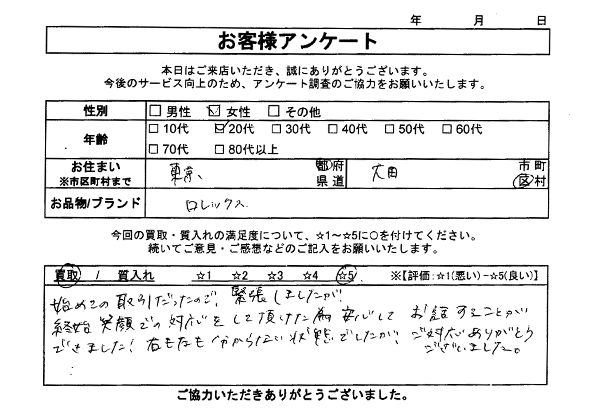 年 月 日
お客様アンケート
本日はご来店いただき、誠にありがとうございます。
今後のサービス向上のため、アンケート調査のご協力をお願いいたします。
性別 □ 男性 ☑ 女性 □ その他
年齢 □ 10代 ☑ 20代 □ 30代 □ 40代 □ 50代 □ 60代
□ 70代 □ 80代以上
お住まい ※市区町村まで 東京 都府県道 大田 市町区村
お品物/ブランド ロレックス
今回の買取・質入れの満足度について、☆1～☆5に○を付けてください。
続いてご意見・ご感想などのご記入をお願いいたします。
買取 / 質入れ ☆1 ☆2 ☆3 ☆4 ☆5 ※【評価:☆1(悪い)－☆5(良い)】
始めての取引だったので、緊張しましたが!
終始笑顔での対応をして頂けた為安心して お話することが
できました! 右も左も分からない状態でしたが、ご対応ありがとう
ございました。
ご協力いただきありがとうございました。